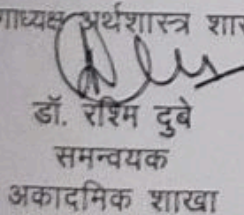 गाध्यक्ष अर्थशास्त्र शा
डॉ. रश्मि दुबे
समन्वयक
अकादमिक शाखा